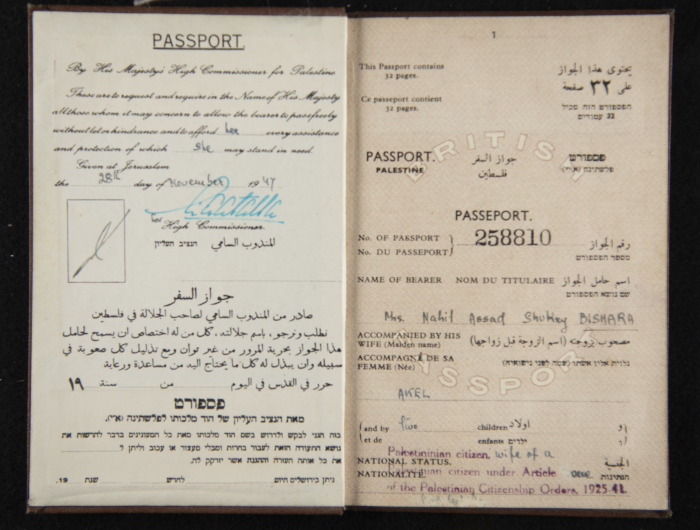 PASSPORT.
By His Majesty's High Commissioner for Palestine
These are to request and require in the Name of His Majesty
all those whom it may concern to allow the bearer to pass freely
without let or hindrance and to afford her every assistance
and protection of which she may stand in need.
Given at Jerusalem
the 28th day of November 1947
High Commissioner.
المندوب السامي הנציב העליון
جواز السفر
صادر من المندوب السامي لصاحب الجلالة في فلسطين
نطلب ونرجو، باسم جلالته، كل من له اختصاص ان يسمح لحامل
هذا الجواز بحرية المرور من غير توان ومع تذليل كل صعوبة في
سبيله وان يبذل له كل ما يحتاج اليه من مساعدة ورعاية
حرر في القدس في اليوم من سنة ١٩
פספורט
מאת הנציב העליון של הוד מלכותו לפלשתינה (א״י).
ניתן בירושלים היום לחדש שנת 19.
1
This Passport contains
32 pages.
يحتوي هذا الجواز
على ٣٢ صفحة
Ce passeport contient
32 pages.
הפספורט הזה מכיל
32 עמודים
BRITISH
PASSPORT.
PALESTINE
جواز السفر
فلسطين
פספורט
פלשתינה (א״י)
PASSEPORT.
No. OF PASSPORT
No. DU PASSEPORT
258810
رقم الجواز
מספר הפספורט
NAME OF BEARER NOM DU TITULAIRE اسم حامل الجواز
שם נושא הפספורט
Mrs. Nahil Assad Shukry BISHARA
ACCOMPANIED BY HIS
WIFE (Maiden name)
مصحوب بزوجته (اسم الزوجة قبل زواجها)
ACCOMPAGNÉ DE SA
FEMME (Née)
PASSPORT
AKEL
and by five children اولاد
et de enfants ילדים
Palestinian citizen, wife of a
NATIONAL STATUS. الجنسية
Palestinian citizen under Article one
NATIONALITÉ. הנתינות
of the Palestinian Citizenship Orders, 1925-41.